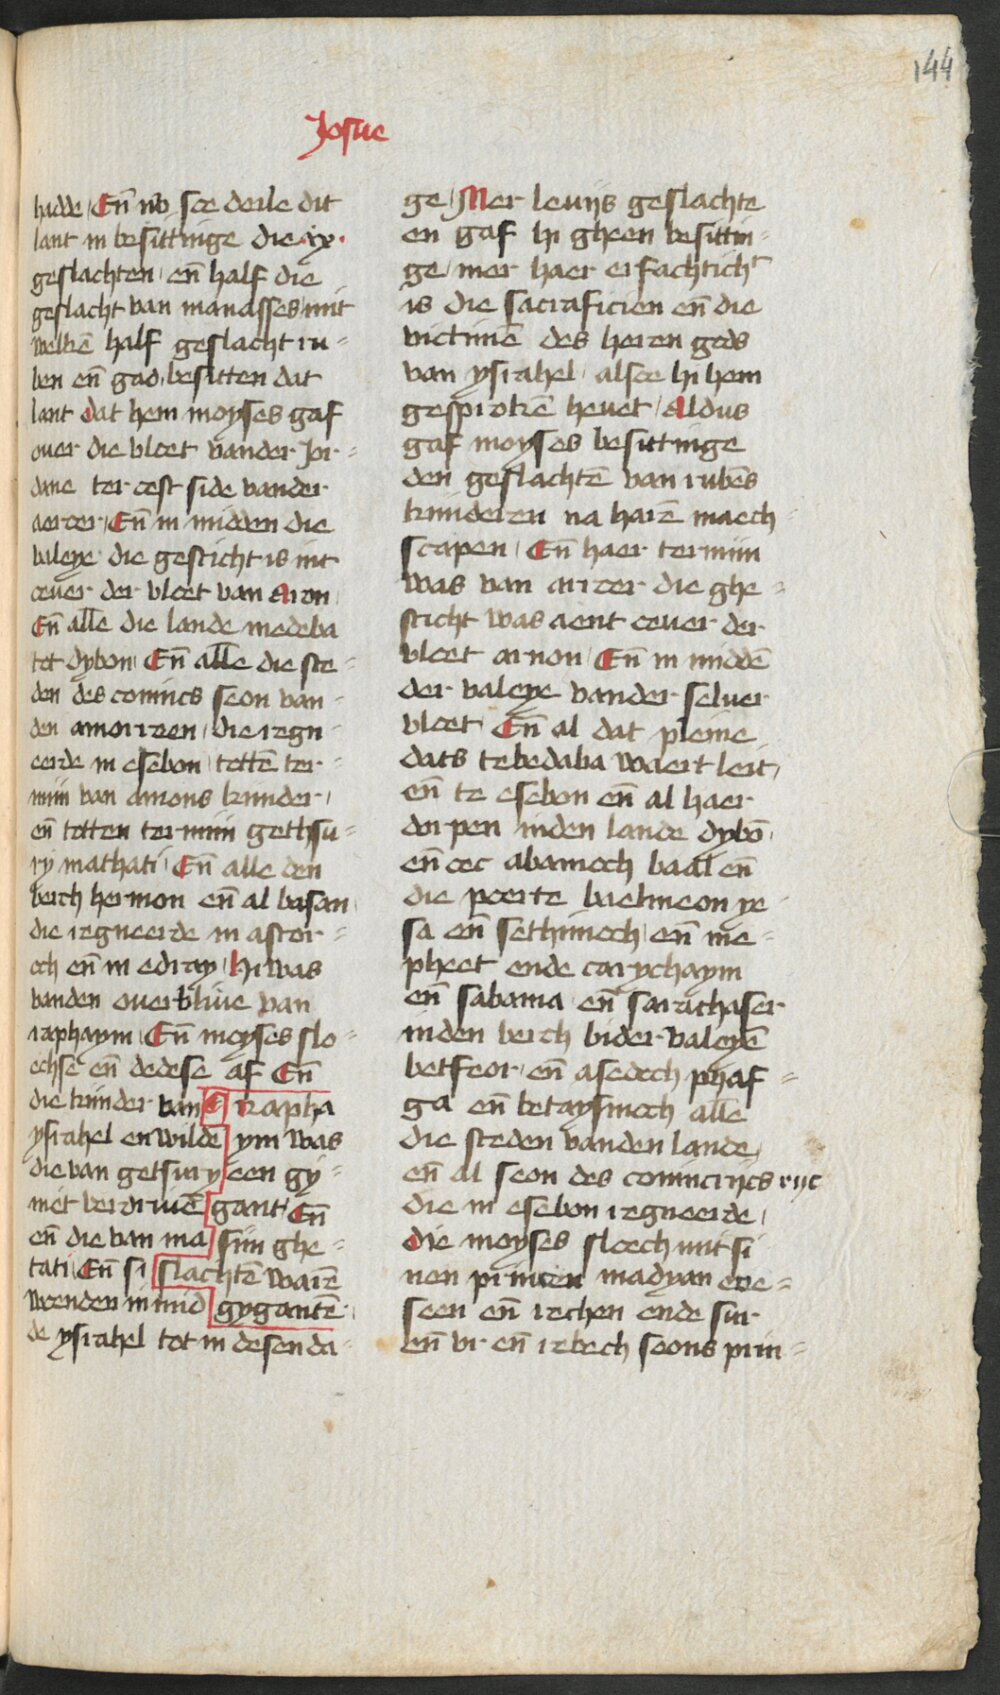 144
Josue
hadde En̄ nv soe deile dit
lant in besittinge die .ix.
geslachten en̄ half die
geslacht van manasses mit
welkē half geslacht ru-
ben en̄ gad besitten dat
lant dat hem moyses gaf
ouer die vloet vander Jor-
dane ter oest side vander
aercer En̄ in midden die
valeye die gesticht is int
oeuer der vloet van Aron
En̄ alle die lande medeba
tot dybon En̄ alle die ste-
den des conincs seon van-
den amorreen die regn-
eerde in esebon tottē ter-
miin van amons kinder
en̄ totten termiin gethsu-
ry mathati En̄ alle den
berch hermon en̄ al basan
die regneerde in astor-
och en̄ in edray Hi was
vanden ouerblīue van
raphaym En̄ moyses slo-
echse en̄ dedese af En̄
die kinder van
ysrahel en wilde
die van getsury
niet verdriuē
en̄ die van ma
tati En̄ si
woenden in mid
de ysrahel tot in desen da-
C rapha
ym was
een gy-
gant En̄
siin ghe-
slachtē warē
gygantē
ge Mer leuijs geslachte
en gaf hi gheen besittin-
ge mer haer erfachticht
is die sacraficien en̄ die
victimē des heren gods
van ysrahel alsoe hi hem
gesprokē heuet Aldus
gaf moyses besittinge
den geslachtē van rubēs
kinderen na harē maech-
scapen En̄ haer termiin
was van aroer die ghe-
sticht was aent oeuer der
vloet arnon En̄ in middē
der valeye vander seluer
vloet En̄ al dat pleine
dats tebedaba waert leit
en̄ te esebon en̄ al haer
dorpen inden lande dybō
en̄ oec abamoch baal en̄
die poerte baelmeon ye-
sa en̄ sethimoch en̄ me-
pheet ende carychaym
en̄ sabama en̄ sarathaser
inden berch bider valeyē
betfeor en̄ asedoch phaf-
ga en̄ betaysmoch alle
die steden vanden lande
en̄ al seon des conincrijcs rijc
die in esebon regneerde
die moyses sloech mit si
nen princen madyan eue-
seen en̄ rechen ende sur
en̄ vr en̄ rebech seons prin-